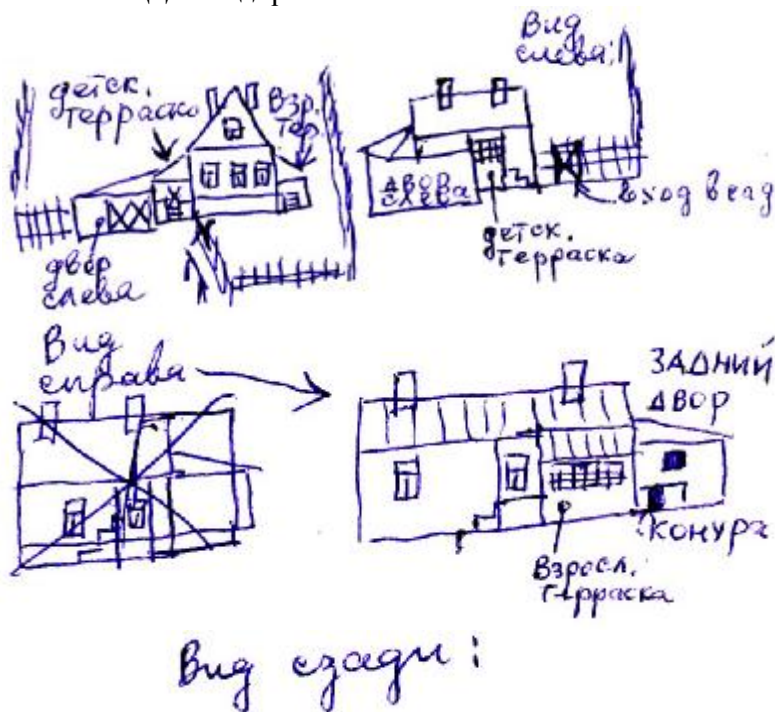 детск.
терраска
Взр.
тер.
двор
слева
Вид
слева:
двор
слева
вход в сад
детск.
терраска
Вид
справа
ЗАДНИЙ
ДВОР
КОНУРА
Взросл.
терраска
Вид сзади: